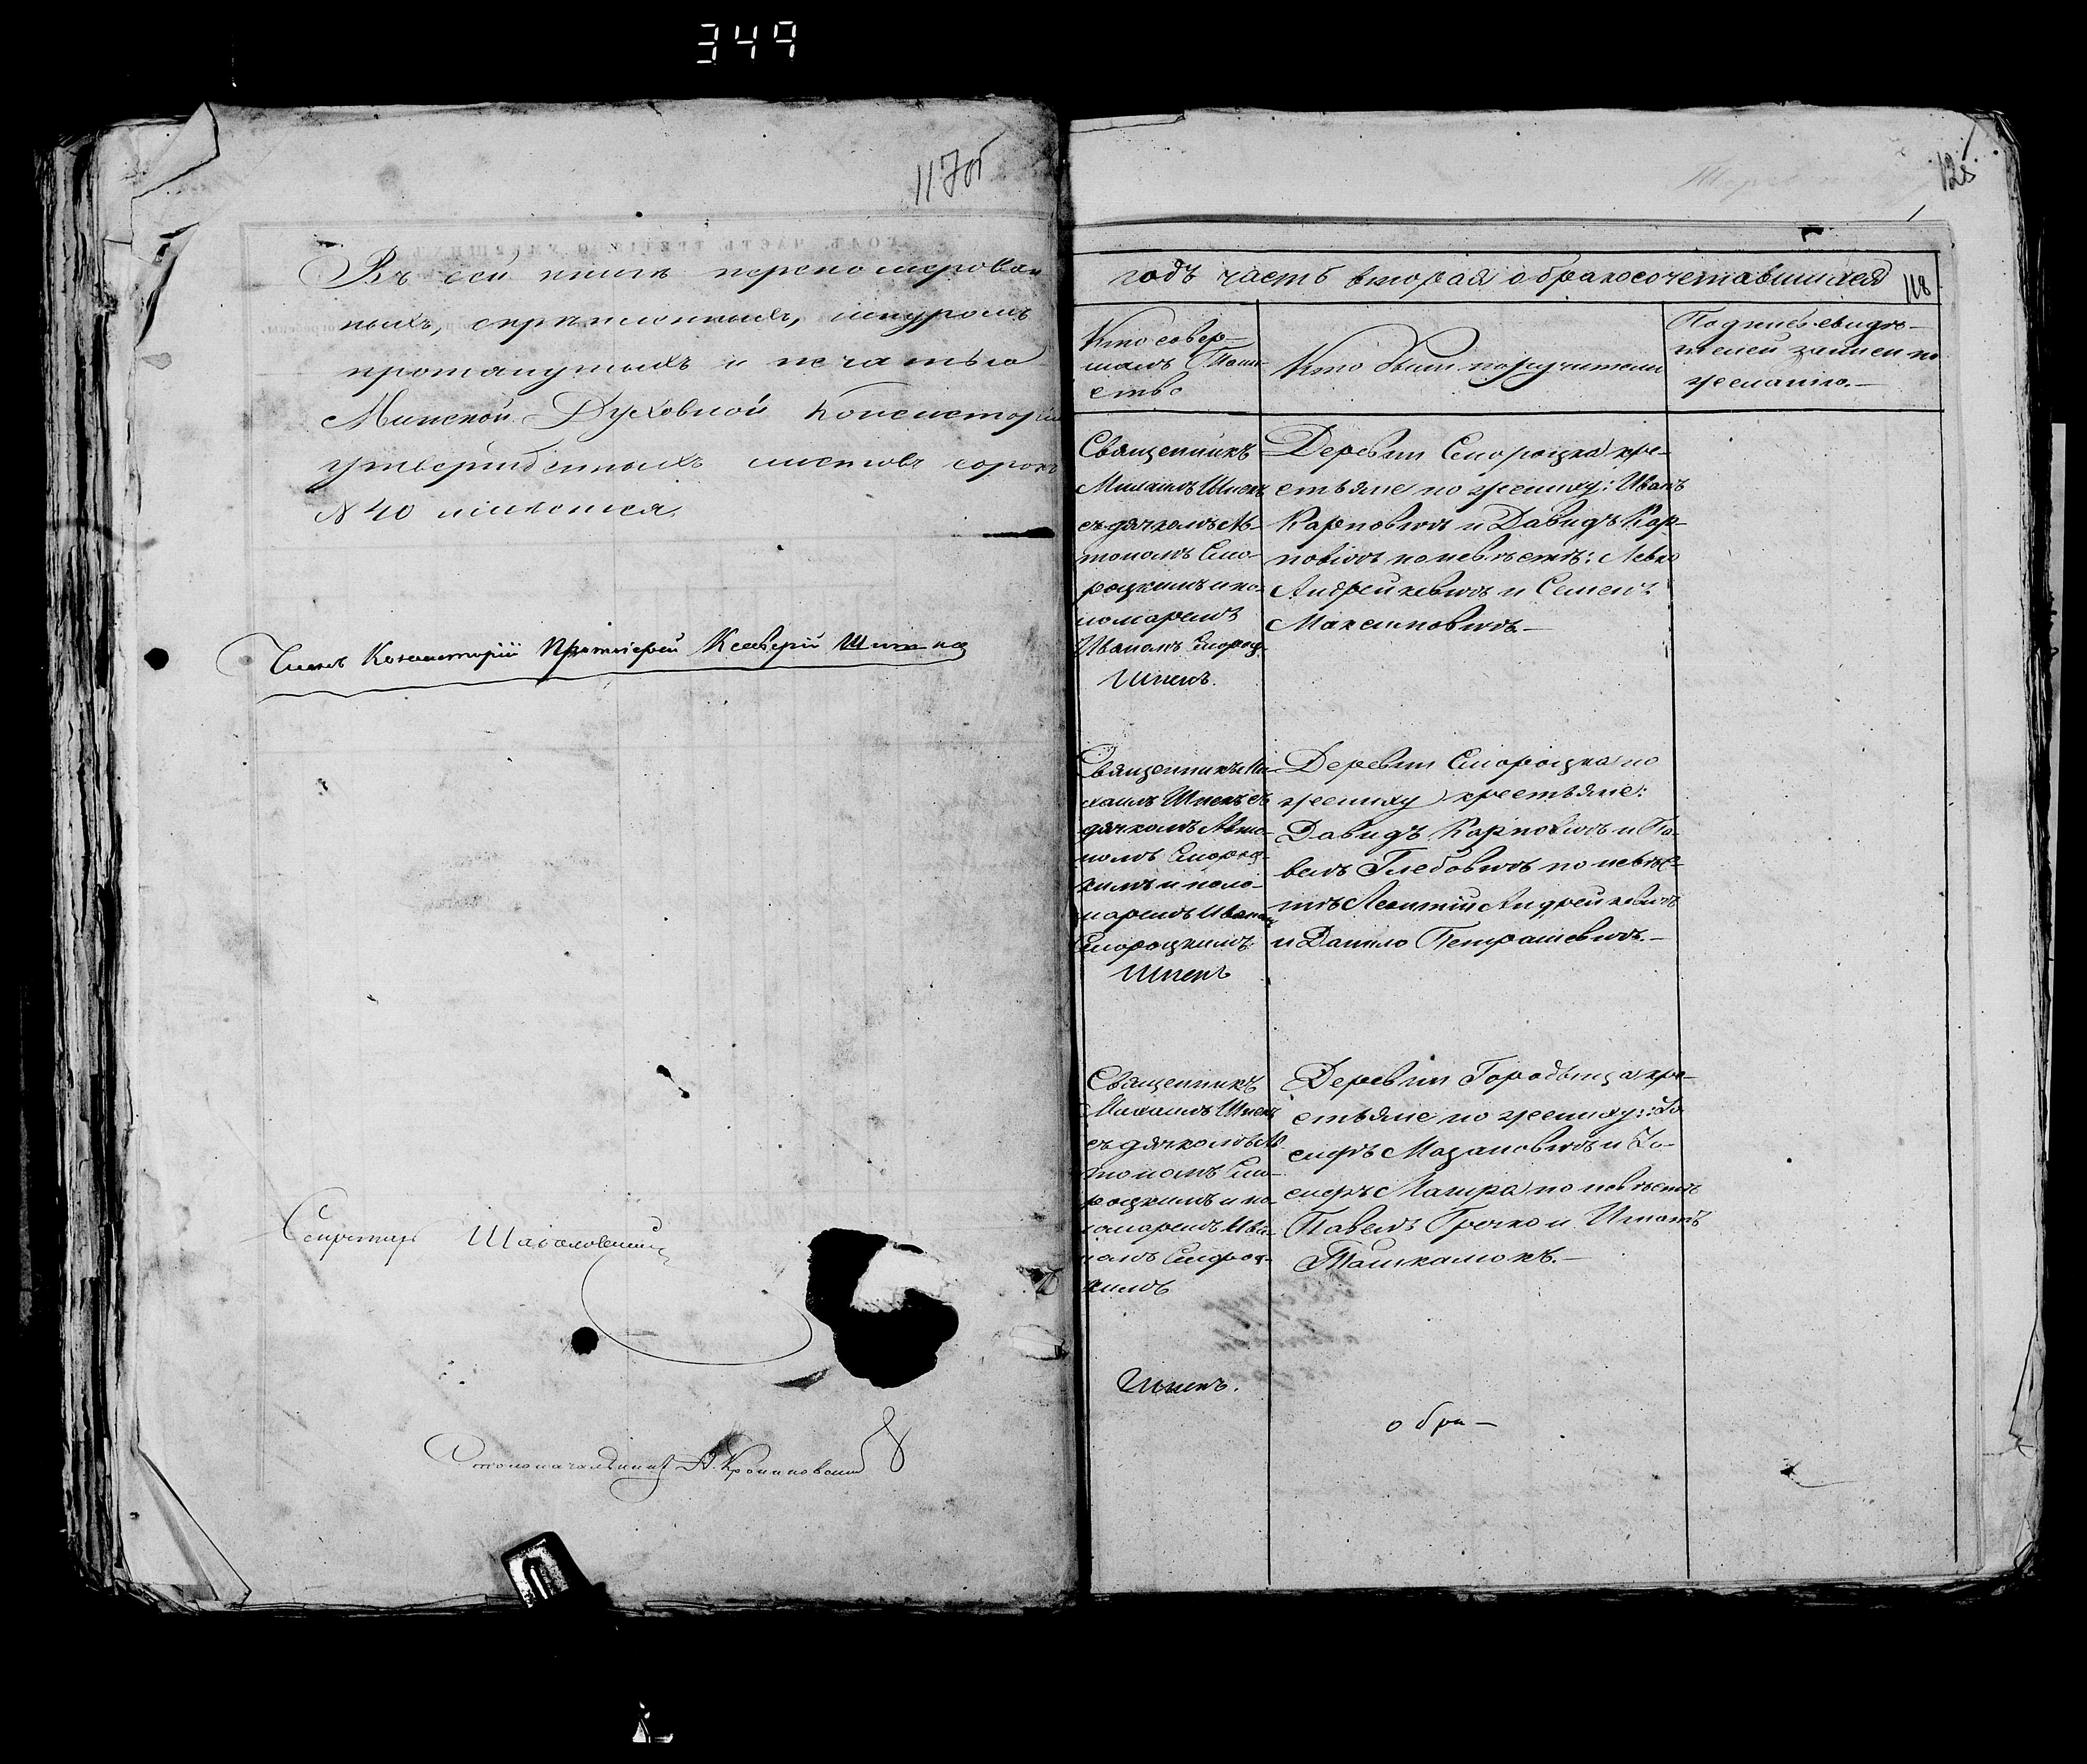 349
117об
Въ сей книгѣ переномерован
ныхъ, скрѣпленныхъ, шнуромъ
протянутыхъ и печатью
Минской Духовной Консисторіи
утвержденныхъ листовъ сорокъ
№ 40 имѣется.
Членъ Консисторіи Протоіерей
Секретарь
Столоначальникъ
128
годъ часть вторая о бракосочетавшихся
118
Кто совер-
шалъ Таин-
ство
Кто были поручители
Подпись свидѣ-
телей записи по
желанію.—
Священникъ
Михаилъ Шпекъ
съ дячкомъ Ан-
тономъ Смо-
роцкимъ и по-
номаремъ
Иваномъ Смороц.
Шпекъ.
Деревни Смороцка кре-
стьяне по жениху: Иванъ
Карповичъ и Давидъ Кар-
повичъ по невѣстѣ: Левко
Андрейкевичъ и Семенъ
Максимовичъ.—
Священникъ Ми-
хаилъ Шпекъ съ
дячкомъ Анто-
номъ Смороц-
кимъ и поно-
маремъ Иваномъ
Смороцкимъ
Шпекъ
Деревни Смороцка по
жениху крестьяне:
Давидъ Карповичъ и Па-
велъ Глебовичъ по невѣс-
тѣ Леонтій Андрейкевичъ
и Данило Петрашевичъ.—
Священникъ
Михаилъ Шпекъ
съ дячкомъ Ан
тономъ Смо-
роцкимъ и по-
номаремъ Ива-
номъ Смороц-
кимъ
Шпекъ.
Деревни Городыща кре-
стьяне по жениху: Іо
сифъ Мазановичъ и Іо-
сифъ по невѣстѣ
Павелъ Гречко и Игнатъ
о бра—